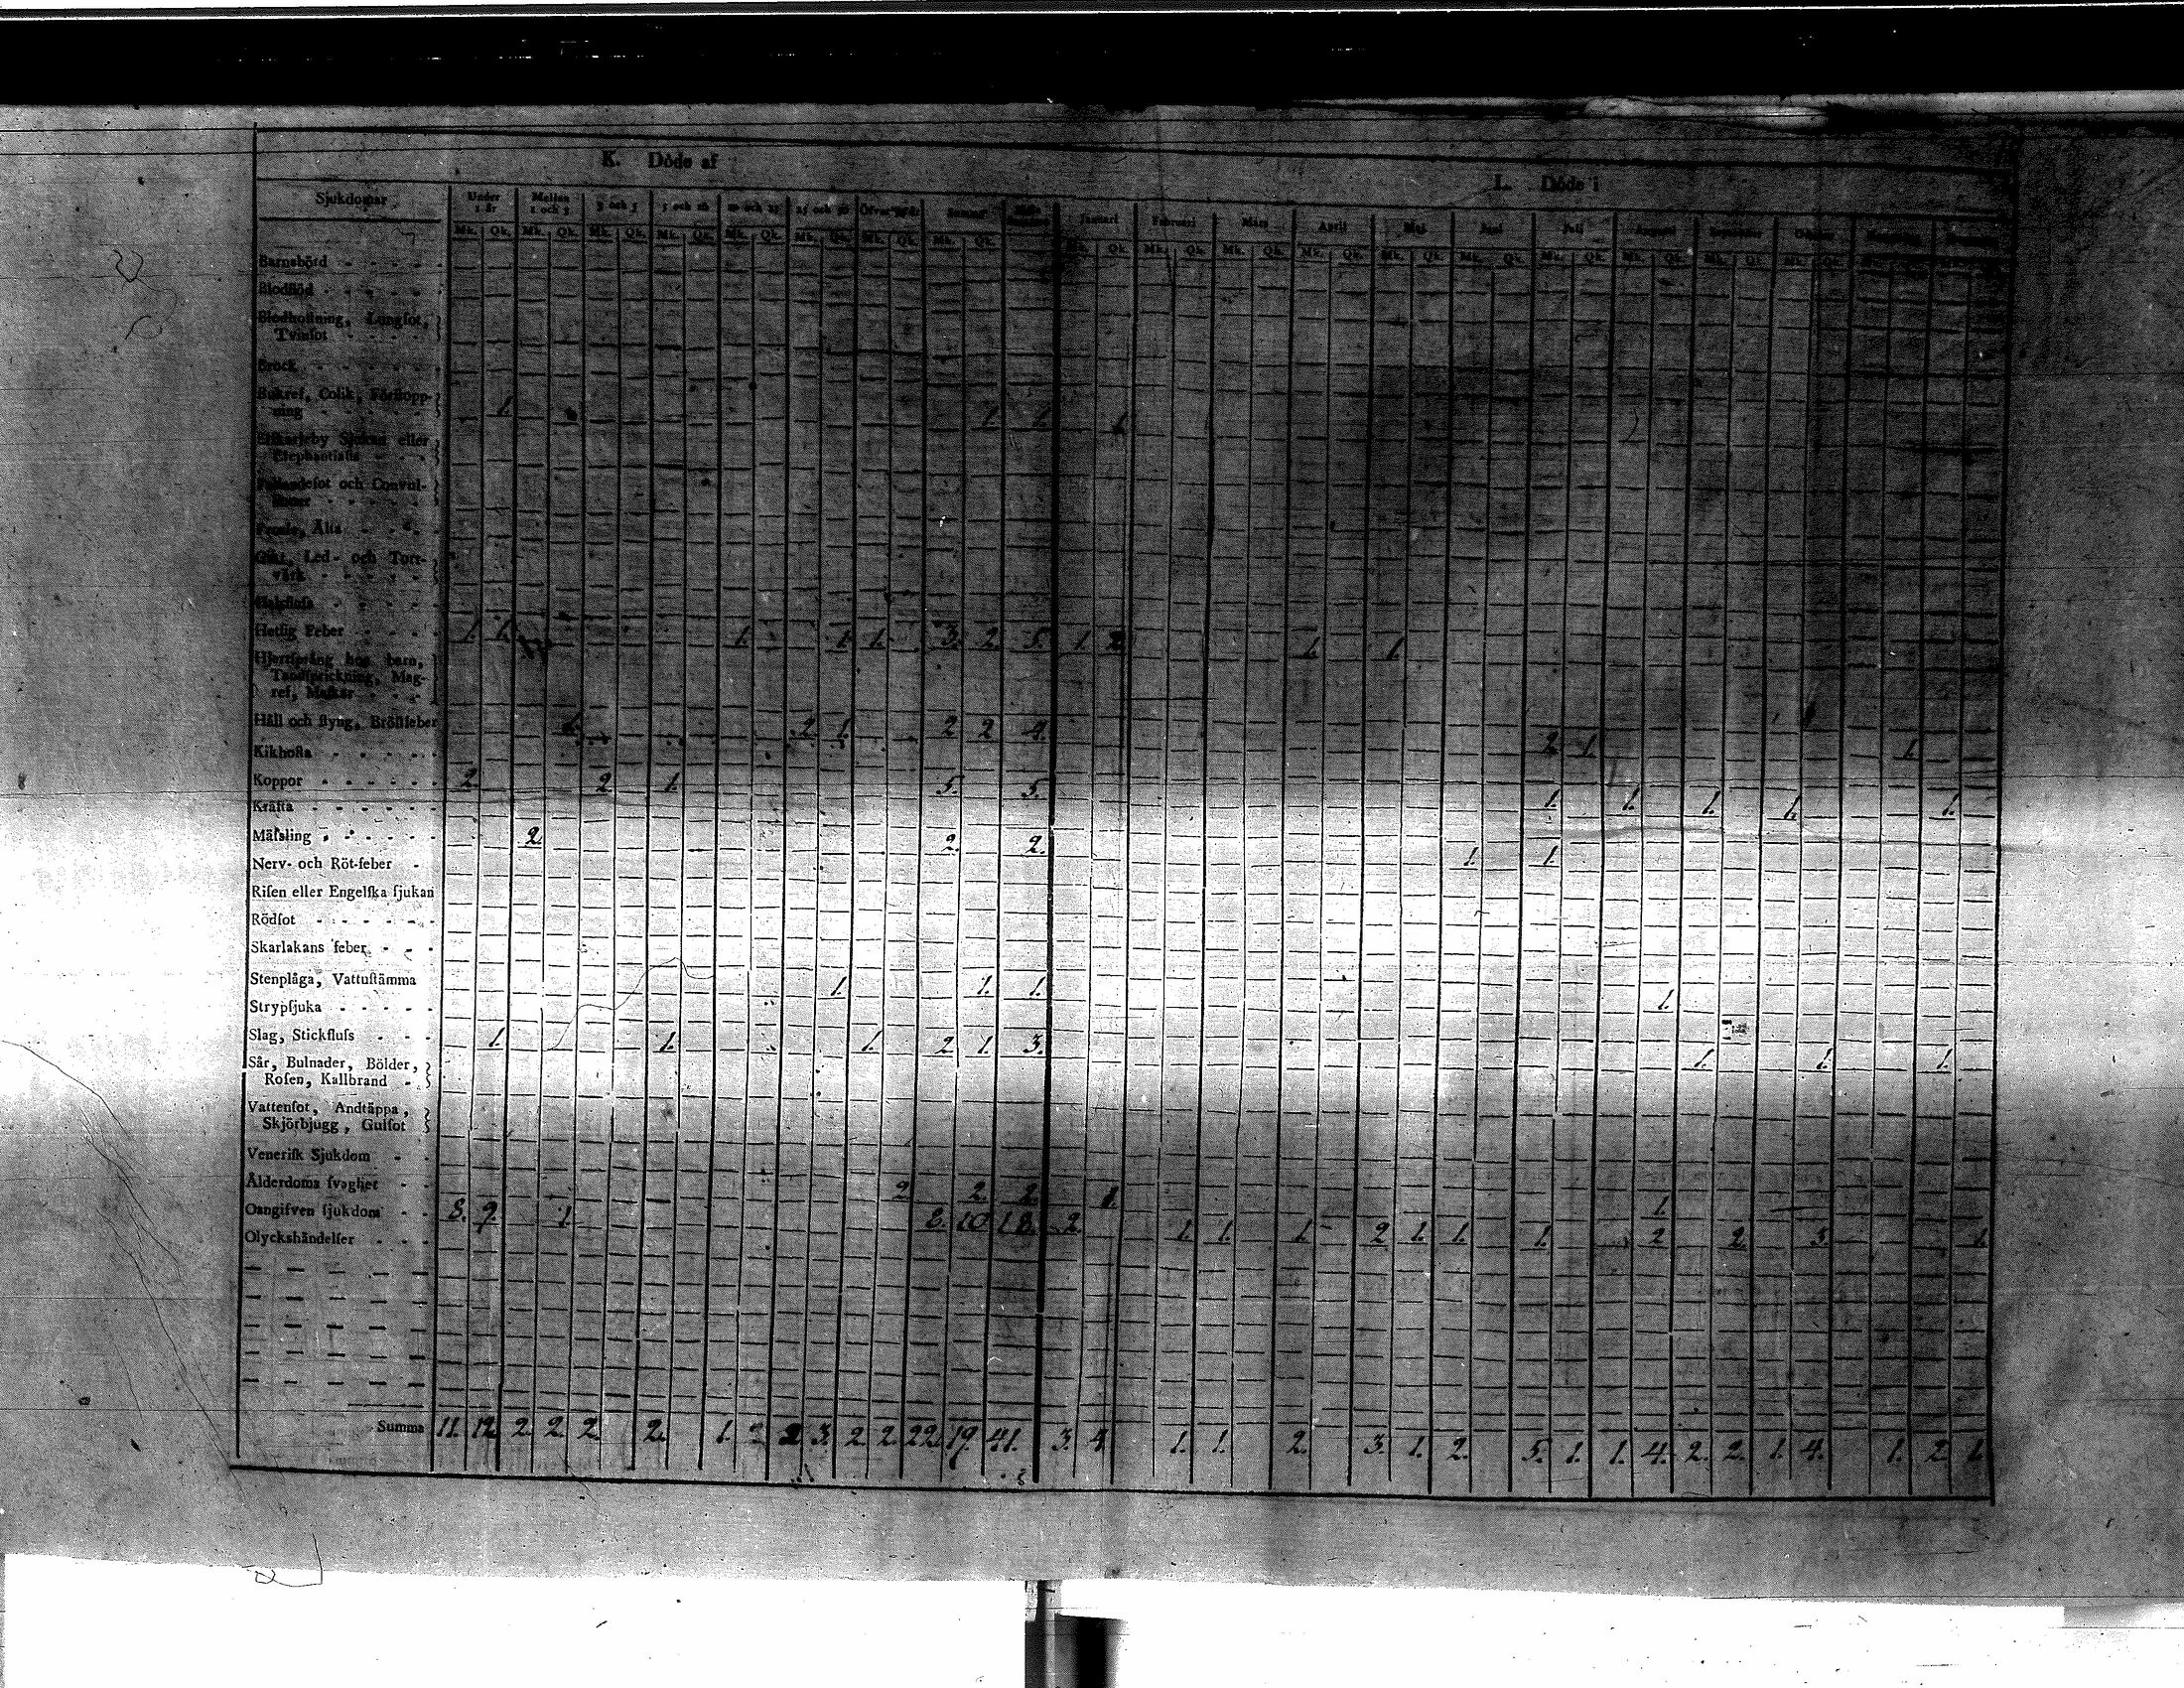 K. Döde af
L. Döde i
Sjukdomar
Under 1 år
Mellan 1 och 3
3 och 5
5 och 10
10 och 25
25 och 50
Öfver 50 år
Summa
Januari Februari Mars April Maj Juni Juli Augusti September October
Mk. Qk. Mk. Qk. Mk. Qk. Mk. Qk. Mk. Qk. Mk. Qk. Mk. Qk. Mk. Qk. Mk. Qk. Mk. Qk. Mk. Qk. Mk. Qk. Mk. Qk. Mk. Qk. Mk. Qk. Mk. Qk. Mk. Qk. Mk. Qk.
Barnsbörd
Blodflöd
Blodhoſtning, Lungſot,
Tvinſot
Brock
Bukref, Colik, Förſtopp-
ning 1. 1. 1. 1.
Elſkarleby Sjukan eller
Elephantiaſis
Fallandeſot och Convul-
ſioner
Froſſa, Älta
Gikt, Led- och Torr-
värk
Halsfluſs
Hetſig Feber 1. 1. 1. 1. 1. 3. 2. 5. 1. 2. 1. 1.
Hjertſprång hos barn,
Tandſprickning, Mag-
ref, Maſkar
Håll och ſtyng, Bröſtfeber 1. 2. 1. 2 2 4. 2 1. 1.
Kikhoſta
Koppor 2. 2. 1. 5. 5. 1. 1. 1. 1. 1.
Kräfta
Mäſsling 2. 2. 2. 1. 1.
Nerv- och Röt-feber
Riſen eller Engelſka ſjukan
Rödſot
Skarlakans feber
Stenplåga, Vattuſtämma 1. 1. 1. 1.
Strypſjuka
Slag, Stickfluſs 1. 1. 1. 2. 1. 3. 1. 1. 1.
Sår, Bulnader, Bölder,
Roſen, Kallbrand
Vattenſot, Andtäppa,
Skjörbjugg, Gulſot
Veneriſk Sjukdom
Ålderdoms ſvaghet 2 2. 2. 1. 1.
Oangifven ſjukdom 8. 9. 1. 8. 10 18. 2. 1. 1. 1. 2 1. 1. 1. 2 2. 3. 1.
Olyckshändelſer
Summa 11. 12. 2. 2. 2. 2. 1. 2. 3. 2. 2. 22. 19. 41. 3. 4. 1. 1. 2. 3. 1. 2. 5. 1. 1. 4. 2. 2. 1. 4. 1. 2. 1.